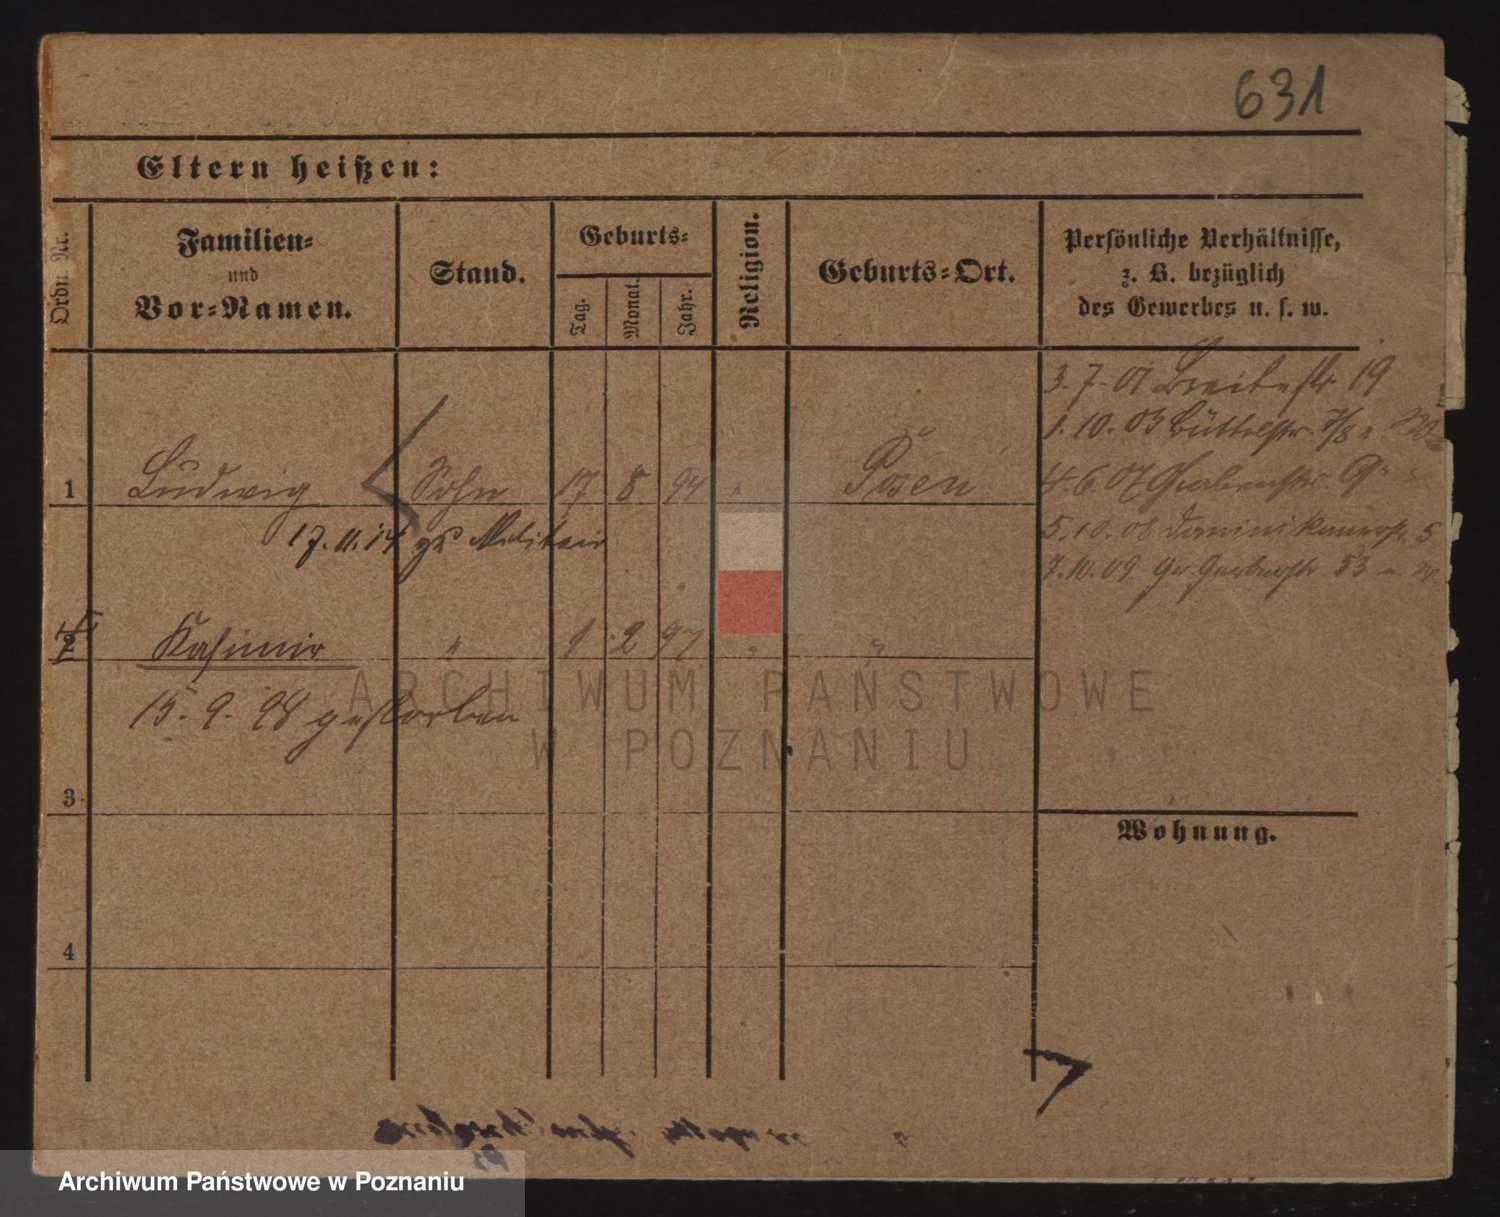 631
Eltern heißen:
Ordn Nr.
Familien-
und
Vor-Namen.
Stand.
Geburts-
Tag.
Monat.
Jahr.
Religion.
Geburts-Ort.
Persönliche Verhältnisse,
z. B. bezüglich
des Gewerbes u. s. w.
3.7.01 Breitestr 19
1.10.03 Büttelstr. 7/8
4.6.07 Grabenstr 9
5.10.08 Dominikanerstr. 5
7.10.09. Gr. Gerberstr. 53
1 Ludwig Sohn 17 8 94 " Posen
17.11.14 zu Militair
2 Kasimir " 1 2 97 " "
15.9.98 gestorben
3
Wohnung.
4
ARCHIWUM PAŃSTWOWE
W POZNANIU
Archiwum Państwowe w Poznaniu